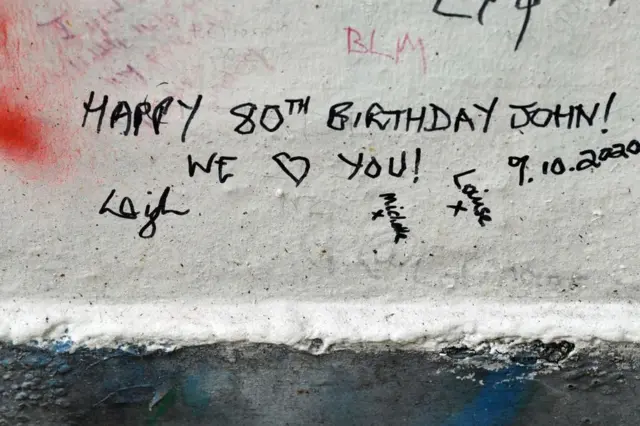 BLM
HAPPY 80TH BIRTHDAY JOHN!
WE ♡ YOU! 9.10.2020
Leigh
Michelle x
Louise x